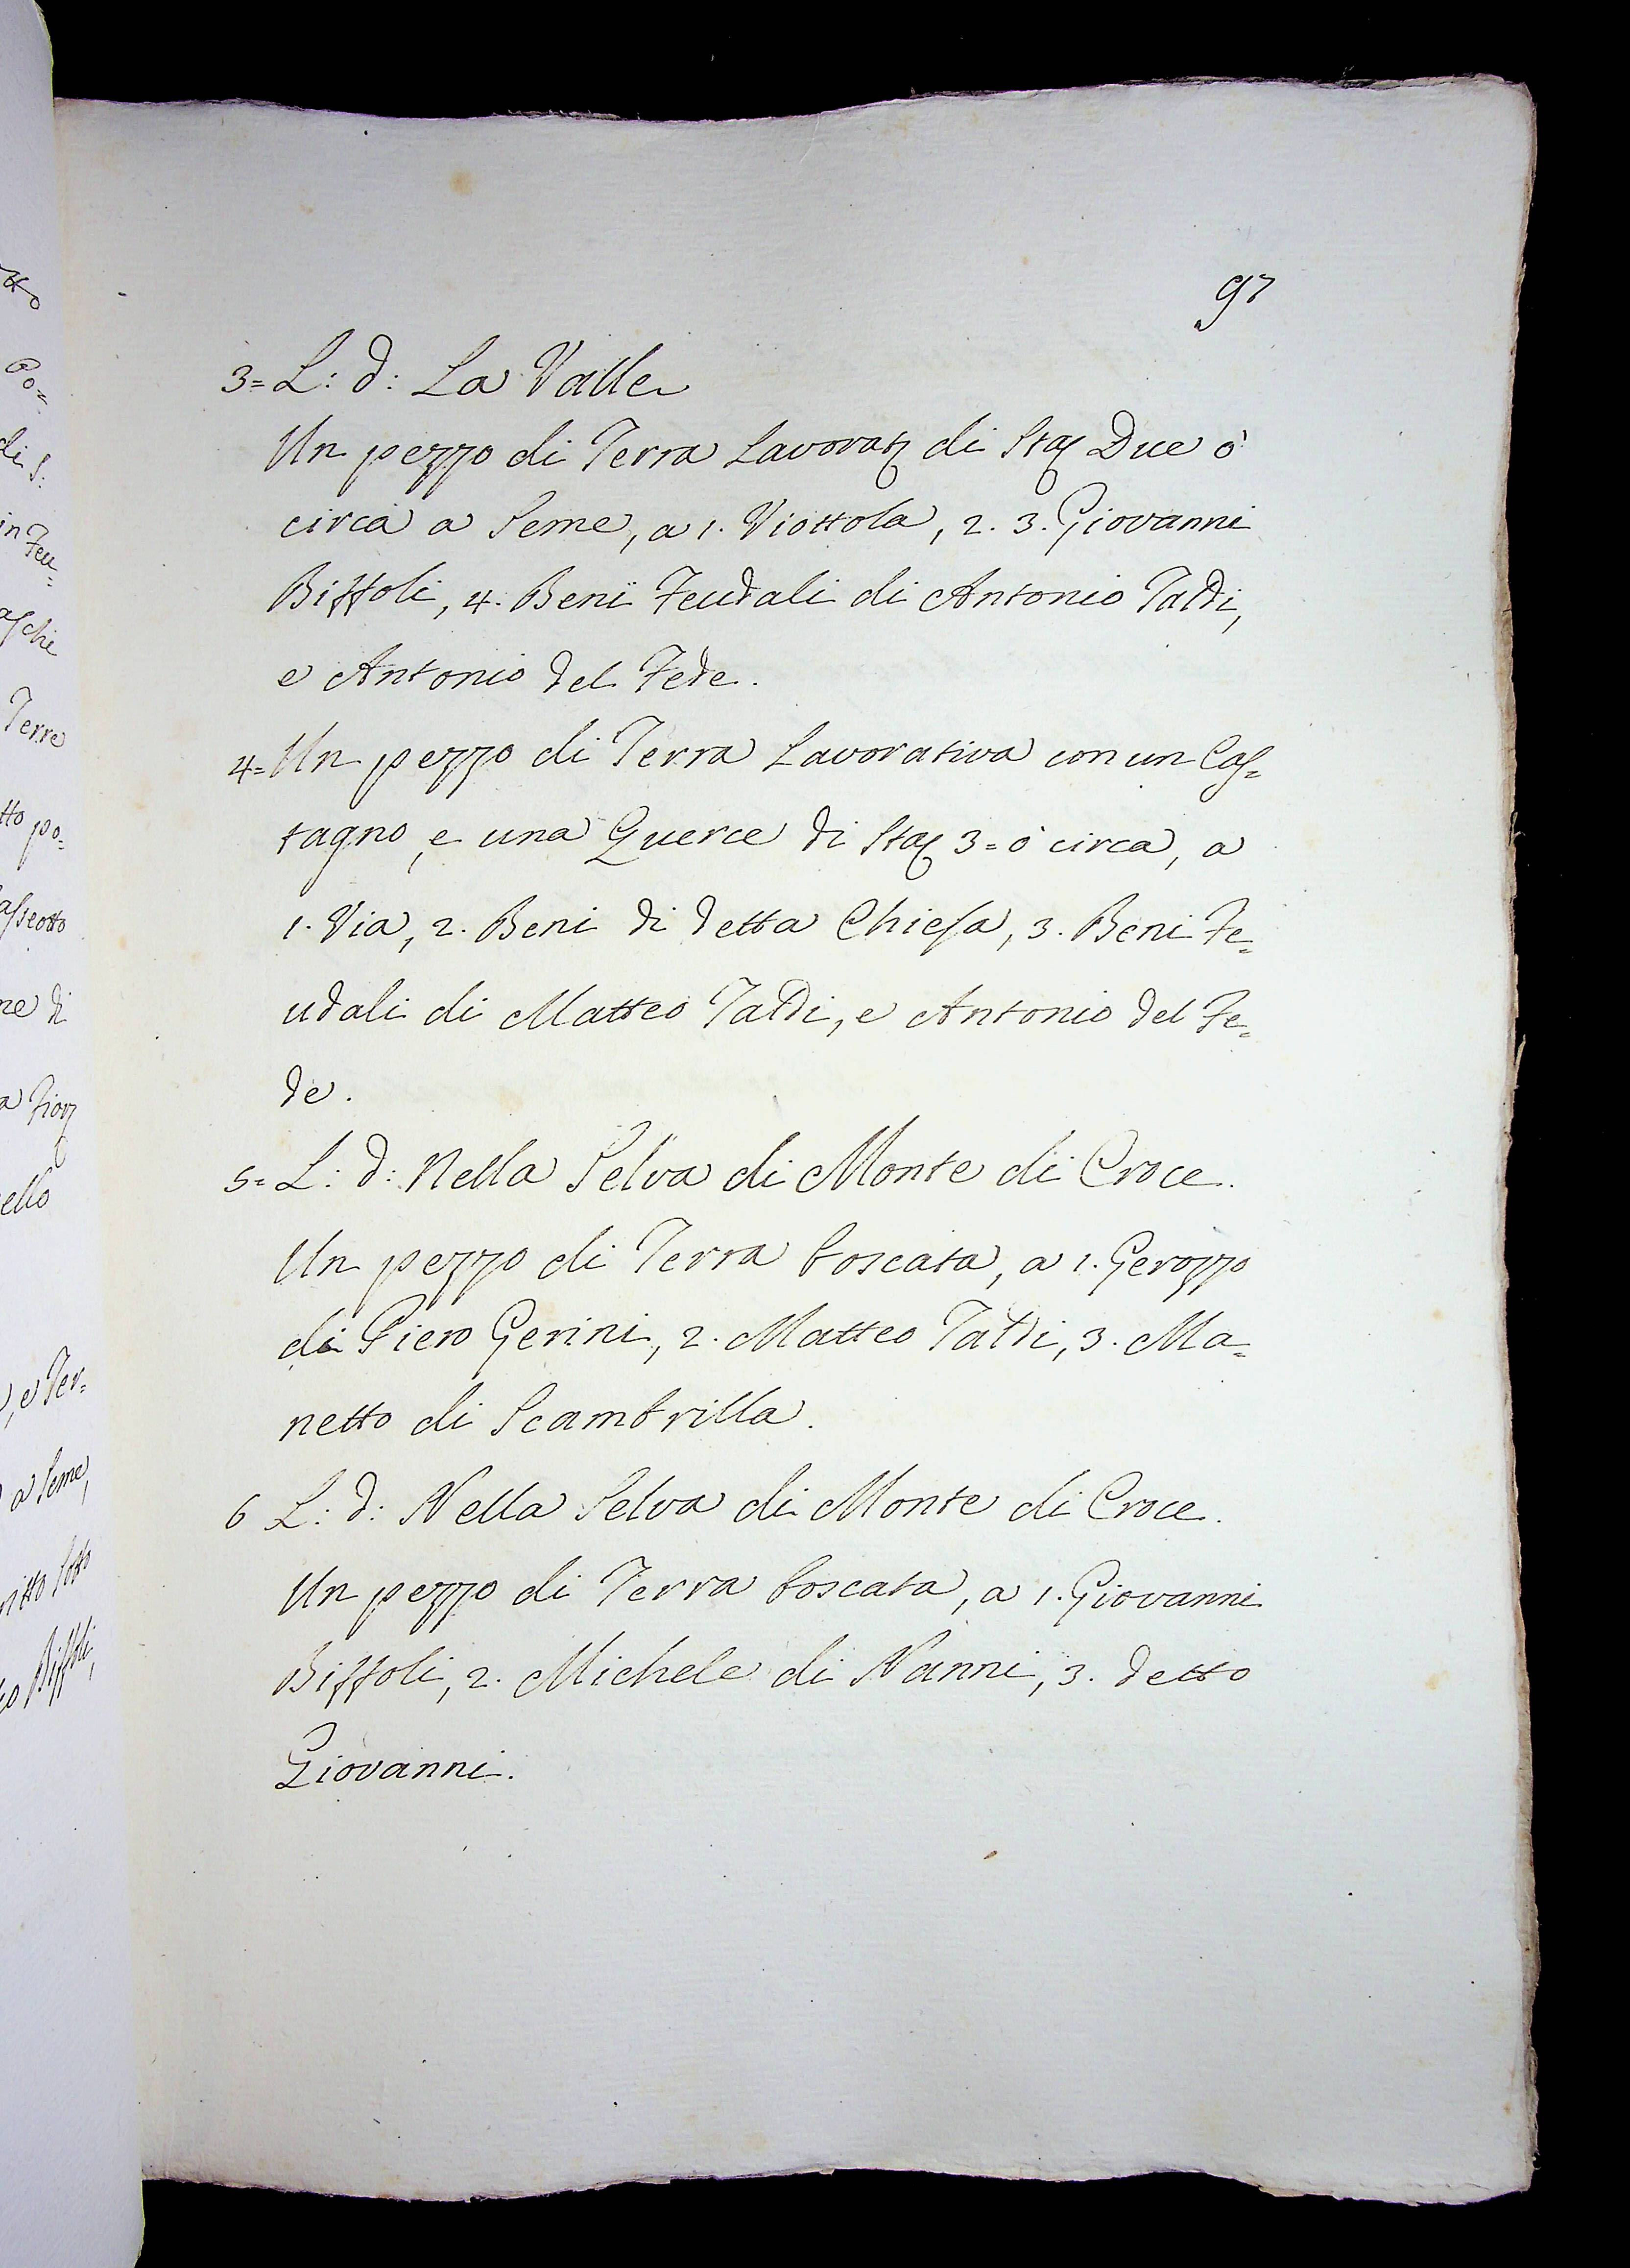 97
3= L: d: La Valle
Un pezzo di Terra Lavorat. di Sta. Due ò
circa a Seme, a 1. Viottola, 2. 3. Giovanni
Biffoli, 4. Beni Feudali di Antonio Taddi,
e Antonio del Fede.
4= Un pezzo di Terra Lavorativa con un Cas=
tagno, e una Querce di Sta. 3= ò circa, a
1. Via, 2. Beni di detta Chiesa, 3. Beni Fe=
udali di Matteo Taddi, e Antonio del Fe=
de.
5= L: d: Nella Selva di Monte di Croce.
Un pezzo di Terra boscata, a 1. Gerozzo
di Piero Gerini, 2. Matteo Taddi, 3. Ma=
netto di Scambrilla.
6 L: d: Nella Selva di Monte di Croce.
Un pezzo di Terra boscata, a 1. Giovanni
Biffoli, 2. Michele di Nanni, 3. detto
Giovanni.